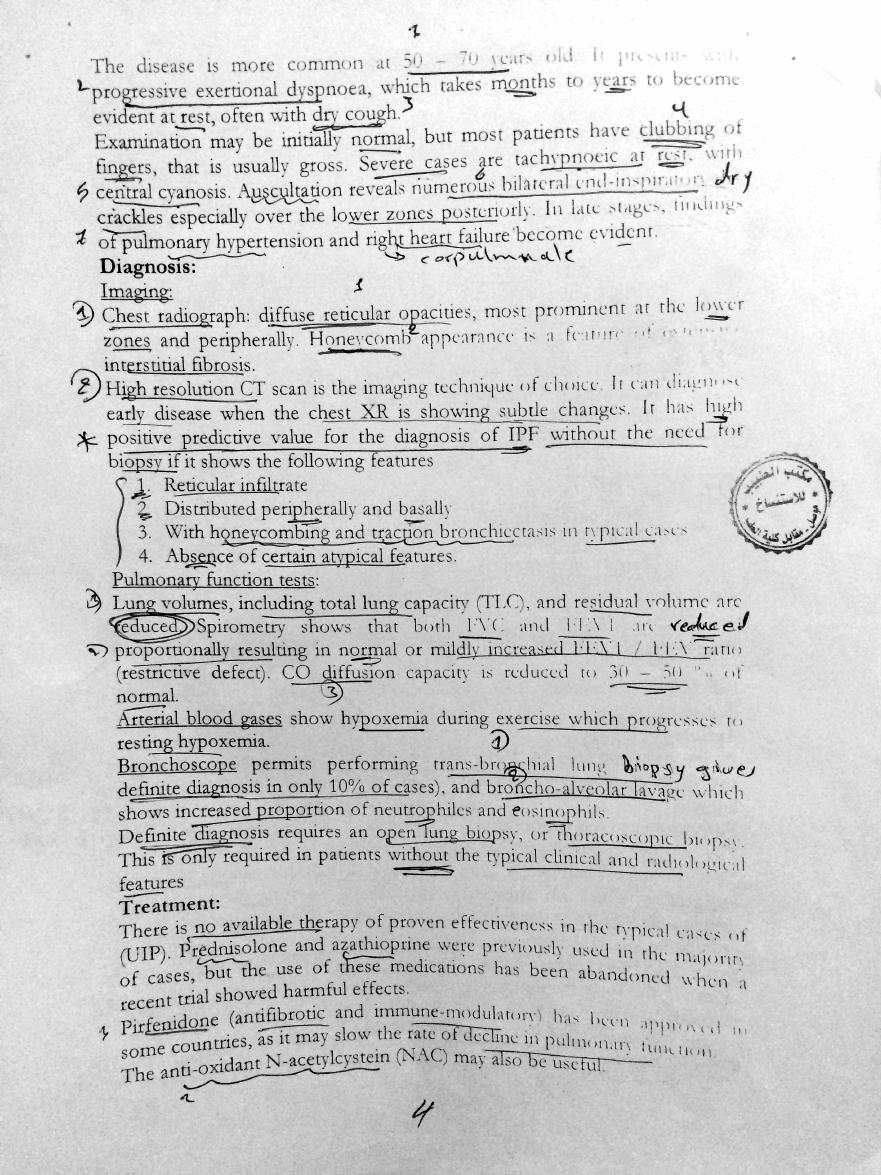 1
The disease is more common at 50 – 70 years old. It presents with
2 progressive exertional dyspnoea, which takes months to years to become
evident at rest, often with dry cough. 3
4
Examination may be initially normal, but most patients have clubbing of
fingers, that is usually gross. Severe cases are tachypnoeic at rest, with
5 central cyanosis. Auscultation reveals numerous bilateral end-inspiratory dry
6
crackles especially over the lower zones posteriorly. In late stages, findings
of pulmonary hypertension and right heart failure become evident.
corpulmonale
Diagnosis:
Imaging:
1
① Chest radiograph: diffuse reticular opacities, most prominent at the lower
zones and peripherally. Honeycomb appearance is a feature of extensive
2
interstitial fibrosis.
② High resolution CT scan is the imaging technique of choice. It can diagnose
early disease when the chest XR is showing subtle changes. It has high
* positive predictive value for the diagnosis of IPF without the need for
biopsy if it shows the following features
1. Reticular infiltrate
2. Distributed peripherally and basally
3. With honeycombing and traction bronchiectasis in typical cases
4. Absence of certain atypical features.
مكتب الطبيب
للاستنساخ
موصل - مقابل كلية الطب
Pulmonary function tests:
Lung volumes, including total lung capacity (TLC), and residual volume are
reduced. Spirometry shows that both FVC and FEV1 are reduced
proportionally resulting in normal or mildly increased FEV1 / FEV ratio
(restrictive defect). CO diffusion capacity is reduced to 30 – 50 % of
③
normal.
Arterial blood gases show hypoxemia during exercise which progresses to
resting hypoxemia.
①
Bronchoscope permits performing trans-bronchial lung biopsy gives
②
definite diagnosis in only 10% of cases), and broncho-alveolar lavage which
shows increased proportion of neutrophiles and eosinophils.
Definite diagnosis requires an open lung biopsy, or thoracoscopic biopsy.
This is only required in patients without the typical clinical and radiological
features
Treatment:
There is no available therapy of proven effectiveness in the typical cases of
(UIP). Prednisolone and azathioprine were previously used in the majority
of cases, but the use of these medications has been abandoned when a
recent trial showed harmful effects.
1 Pirfenidone (antifibrotic and immune-modulatory) has been approved in
some countries, as it may slow the rate of decline in pulmonary function.
The anti-oxidant N-acetylcystein (NAC) may also be useful.
2
4